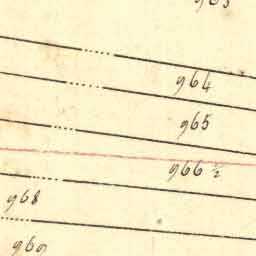 964
965
966 ½
968
969